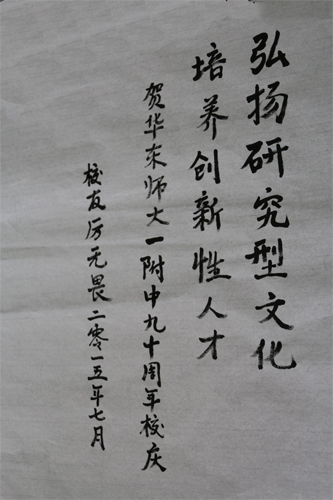 弘扬研究型文化
培养创新性人才
贺华东师大一附中九十周年校庆
校友厉无畏二零一五年七月